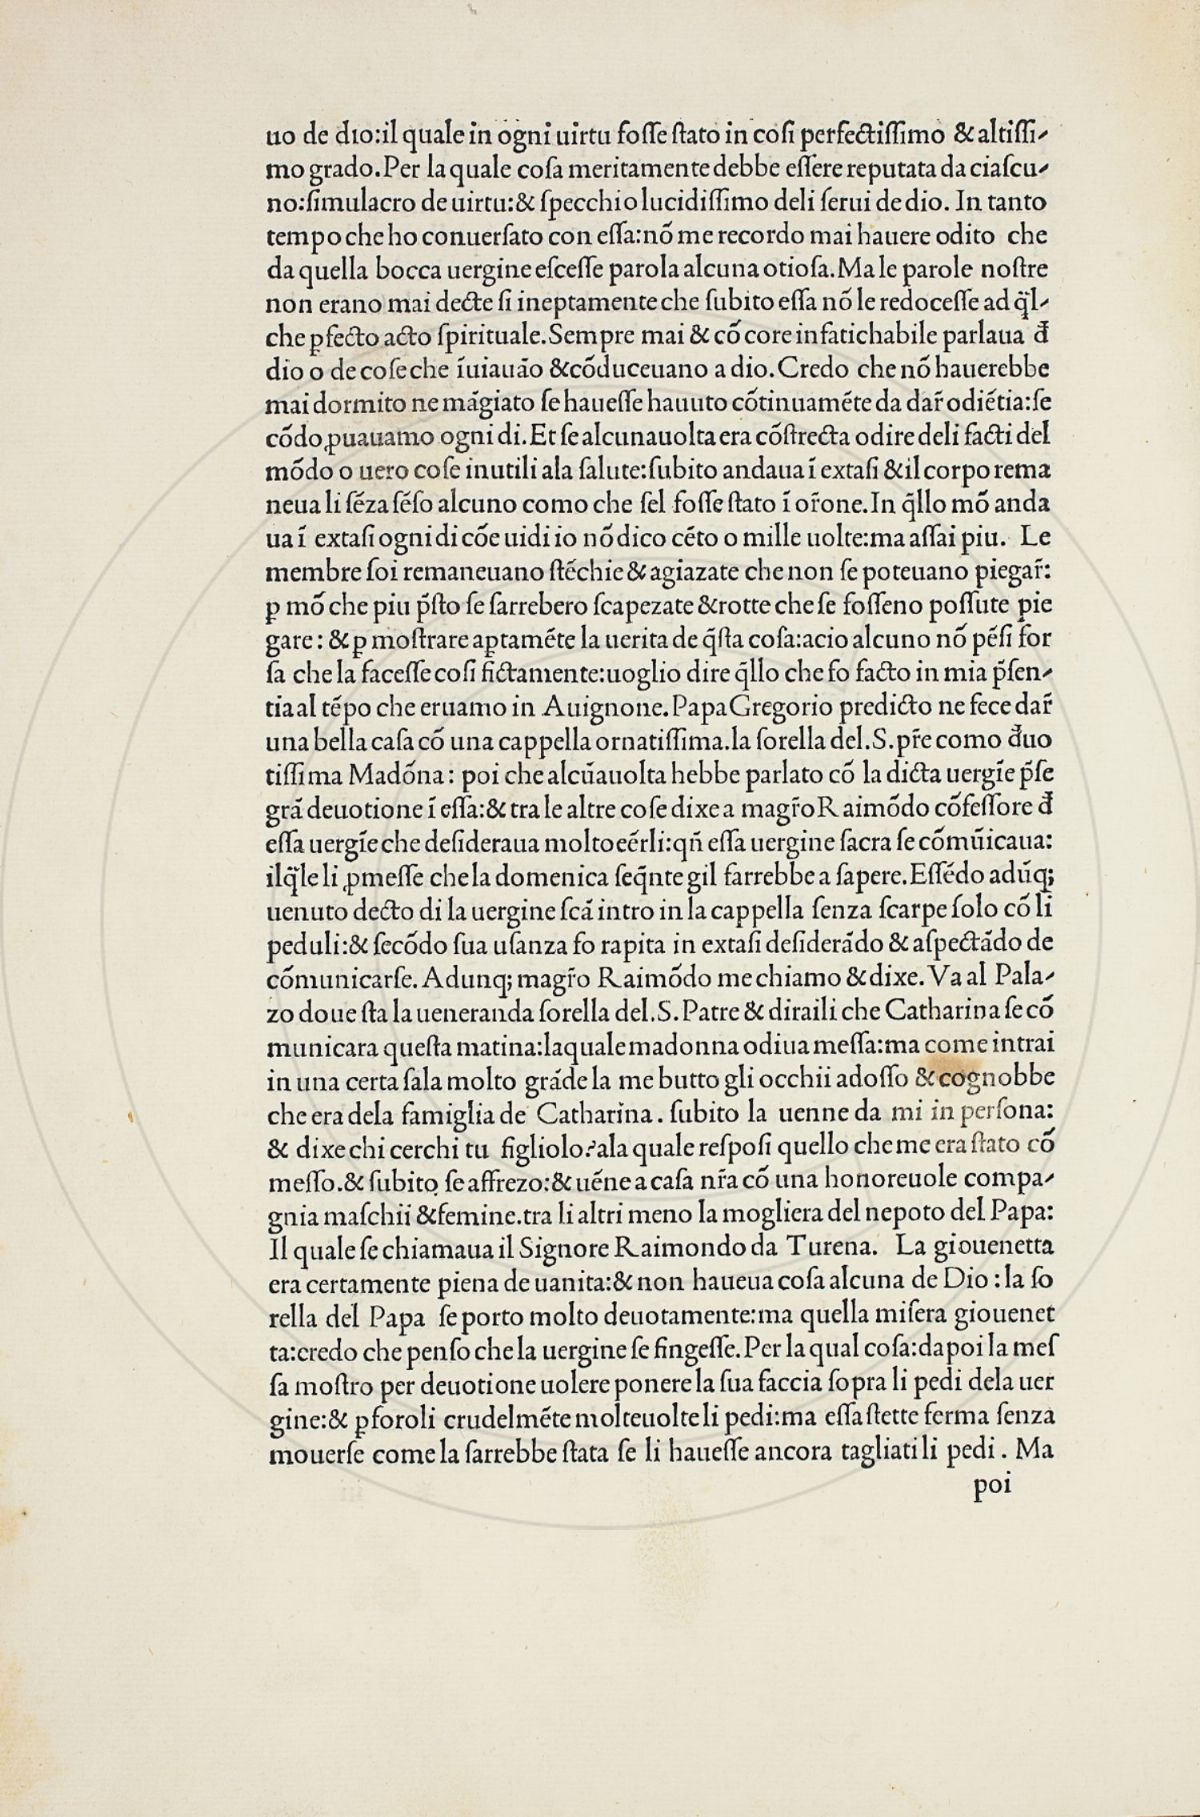 uo de dio:il quale in ogni uirtu foſſe ſtato in coſi perfectiſſimo & altiſſi-
mo grado.Per la quale coſa meritamente debbe eſſere reputata da ciaſcu-
no:ſimulacro de uirtu:& ſpecchio lucidiſſimo deli ſerui de dio. In tanto
tempo che ho conuerſato con eſſa:nō me recordo mai hauere odito che
da quella bocca uergine eſceſſe parola alcuna otioſa.Ma le parole noſtre
non erano mai decte ſi ineptamente che ſubito eſſa nō le redoceſſe ad q̄l-
che ꝑfecto acto ſpirituale.Sempre mai & cō core infatichabile parlaua đ
dio o de coſe che īuiauāo &cōduceuano a dio.Credo che nō hauerebbe
mai dormito ne māgiato ſe haueſſe hauuto cōtinuamēte da dar̄ odiētia:ſe
cōdo ꝓuauamo ogni di.Et ſe alcunauolta era cōſtrecta odire deli facti del
mōdo o uero coſe inutili ala ſalute:ſubito andaua ī extaſi &il corpo rema
neua li ſēza ſēſo alcuno como che ſel foſſe ſtato ī or̄one.In q̄llo mō anda
ua ī extaſi ogni di cōe uidi io nō dico cēto o mille uolte:ma aſſai piu. Le
membre ſoi remaneuano ſtēchie & agiazate che non ſe poteuano piegar̄:
ꝑ mō che piu p̄ſto ſe ſarrebero ſcapezate &rotte che ſe foſſeno poſſute pie
gare: & ꝑ moſtrare aptamēte la uerita de q̄ſta coſa:acio alcuno nō pēſi for
ſa che la faceſſe coſi fictamente:uoglio dire q̄llo che fo facto in mia p̄ſen-
tia al tēpo che eruamo in Auignone.Papa Gregorio predicto ne fece dar̄
una bella caſa cō una cappella ornatiſſima.la ſorella del.S.pr̄e como đuo
tiſſima Madōna: poi che alcūauolta hebbe parlato cō la dicta uergīe p̄ſe
grā deuotione ī eſſa:& tra le altre coſe dixe a magr̄o Raimōdo cōfeſſore đ
eſſa uergīe che deſideraua molto eēr̄li:qn̄ eſſa uergine ſacra ſe cōmūicaua:
ilq̄le li ꝓmeſſe che la domenica ſeq̄nte gil farrebbe a ſapere.Eſſēdo adūq;
uenuto decto di la uergine ſcā intro in la cappella ſenza ſcarpe ſolo cō li
peduli:& ſecōdo ſua uſanza fo rapita in extaſi deſiderādo & aſpectādo de
cōmunicarſe. Adunq; magr̄o Raimōdo me chiamo & dixe. Va al Pala-
zo doue ſta la ueneranda ſorella del.S. Patre & diraili che Catharina ſe cō
municara queſta matina:laquale madonna odiua meſſa:ma come intrai
in una certa ſala molto grāde la me butto gli occhii adoſſo & cognobbe
che era dela famiglia de Catharina. ſubito la uenne da mi in perſona:
& dixe chi cerchi tu figliolo?ala quale reſpoſi quello che me era ſtato cō
meſſo.& ſubito ſe affrezo:& uēne a caſa nr̄a cō una honoreuole compa-
gnia maſchii &femine.tra li altri meno la mogliera del nepoto del Papa:
Il quale ſe chiamaua il Signore Raimondo da Turena. La giouenetta
era certamente piena de uanita:& non haueua coſa alcuna de Dio : la ſo
rella del Papa ſe porto molto deuotamente:ma quella miſera giouenet
ta:credo che penſo che la uergine ſe fingeſſe.Per la qual coſa:dapoi la meſ
ſa moſtro per deuotione uolere ponere la ſua faccia ſopra li pedi dela uer
gine:& ꝑforoli crudelmēte molte uolte li pedi:ma eſſa ſtette ferma ſenza
mouerſe come la ſarrebbe ſtata ſe li haueſſe ancora tagliati li pedi . Ma
poi